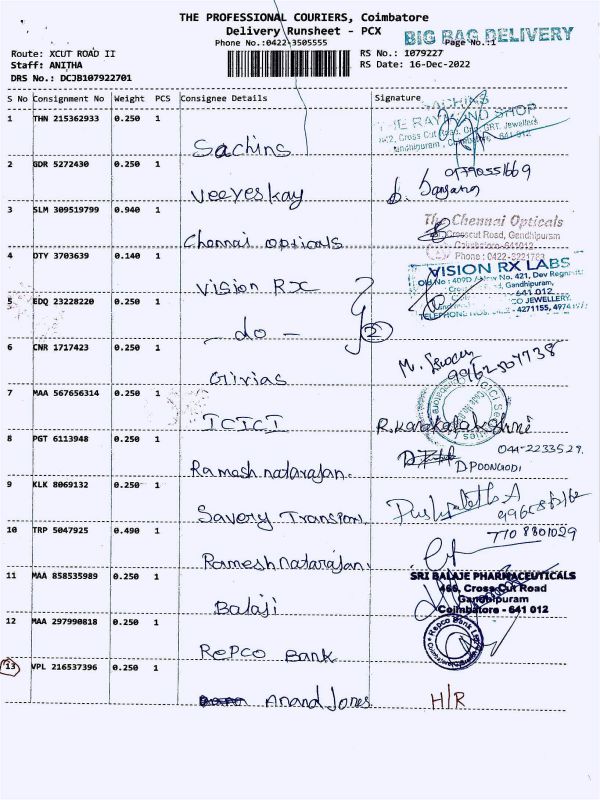 THE PROFESSIONAL COURIERS, Coimbatore
Delivery Runsheet - PCX
BIG BAG DELIVERY
Phone No.:0422-3505555
Page No.:1
Route: XCUT ROAD II
RS No.: 1079227
Staff: ANITHA
RS Date: 16-Dec-2022
DRS No.: DCJB107922701
S No Consignment No Weight PCS Consignee Details Signature
1 THN 215362933 0.250 1
Sachins
SACHINS
THE RAYMOND SHOP
2 GDR 5272430 0.250 1
Veeyeskay
3 SLM 309519799 0.940 1
Chennai opticals
The Chennai Opticals
Crosscut Road, Gandhipuram
Coimbatore-641012
Phone : 0422-
4 DTY 3703639 0.140 1
Vision RX
VISION RX LABS
Old No : 409D / New No. 421, Dev
Gandhipuram,
641 012
CO JEWELLERY.
TELEPHONE NOS. 4271155,
5 EDQ 23228220 0.250 1
- do -
2
6 CNR 1717423 0.250 1
Givias
7 MAA 567656314 0.250 1
ICICI
8 PGT 6113948 0.250 1
Ramesh natarajan.
044-2233529.
D.POONGODI
9 KLK 8069132 0.250 1
Savery
10 TRP 5047925 0.490 1
Ramesh natarajan.
11 MAA 858535989 0.250 1
Balaji
SRI BALAJE PHARMACEUTICALS
466, Cross Cut Road
Gandhipuram
Coimbatore - 641 012
12 MAA 297990818 0.250 1
Repco Bank
Repco Bank
13 VPL 216537396 0.250 1
Anand Jones
H/R